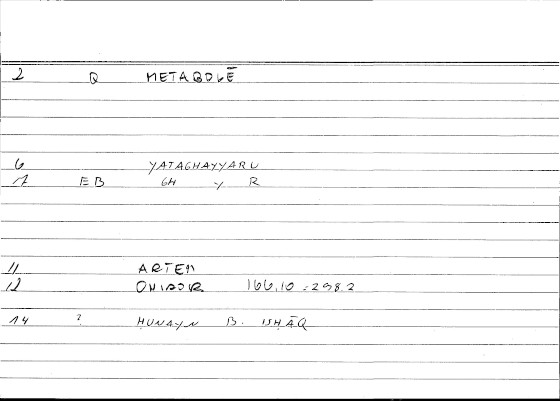 2 Q METABOLĒ
6 YATAGHAYYARU
7 EB GH Y R
11 ARTEM
12 ONIROCR 166,10 = 298.2
14 ? ḤUNAYN B. ISḤĀQ